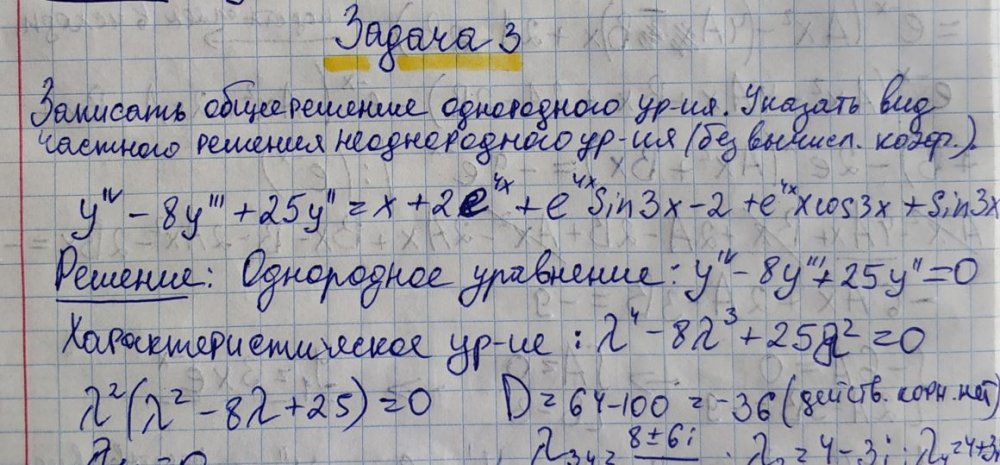 Задача 3
Записать общее решение однородного ур-ия. Указать вид
частного решения неоднородного ур-ия (без вычисл. коэф.).
y^{IV} - 8y''' + 25y'' = x + 2e^{4x} + e^{4x} sin3x - 2 + e^{4x} x cos3x + sin3x
Решение: Однородное уравнение: y^{IV} - 8y''' + 25y'' = 0
Характеристическое ур-ие: λ⁴ - 8λ³ + 25λ² = 0
λ²(λ² - 8λ + 25) = 0 D = 64 - 100 = -36 (действ. корн. нет)